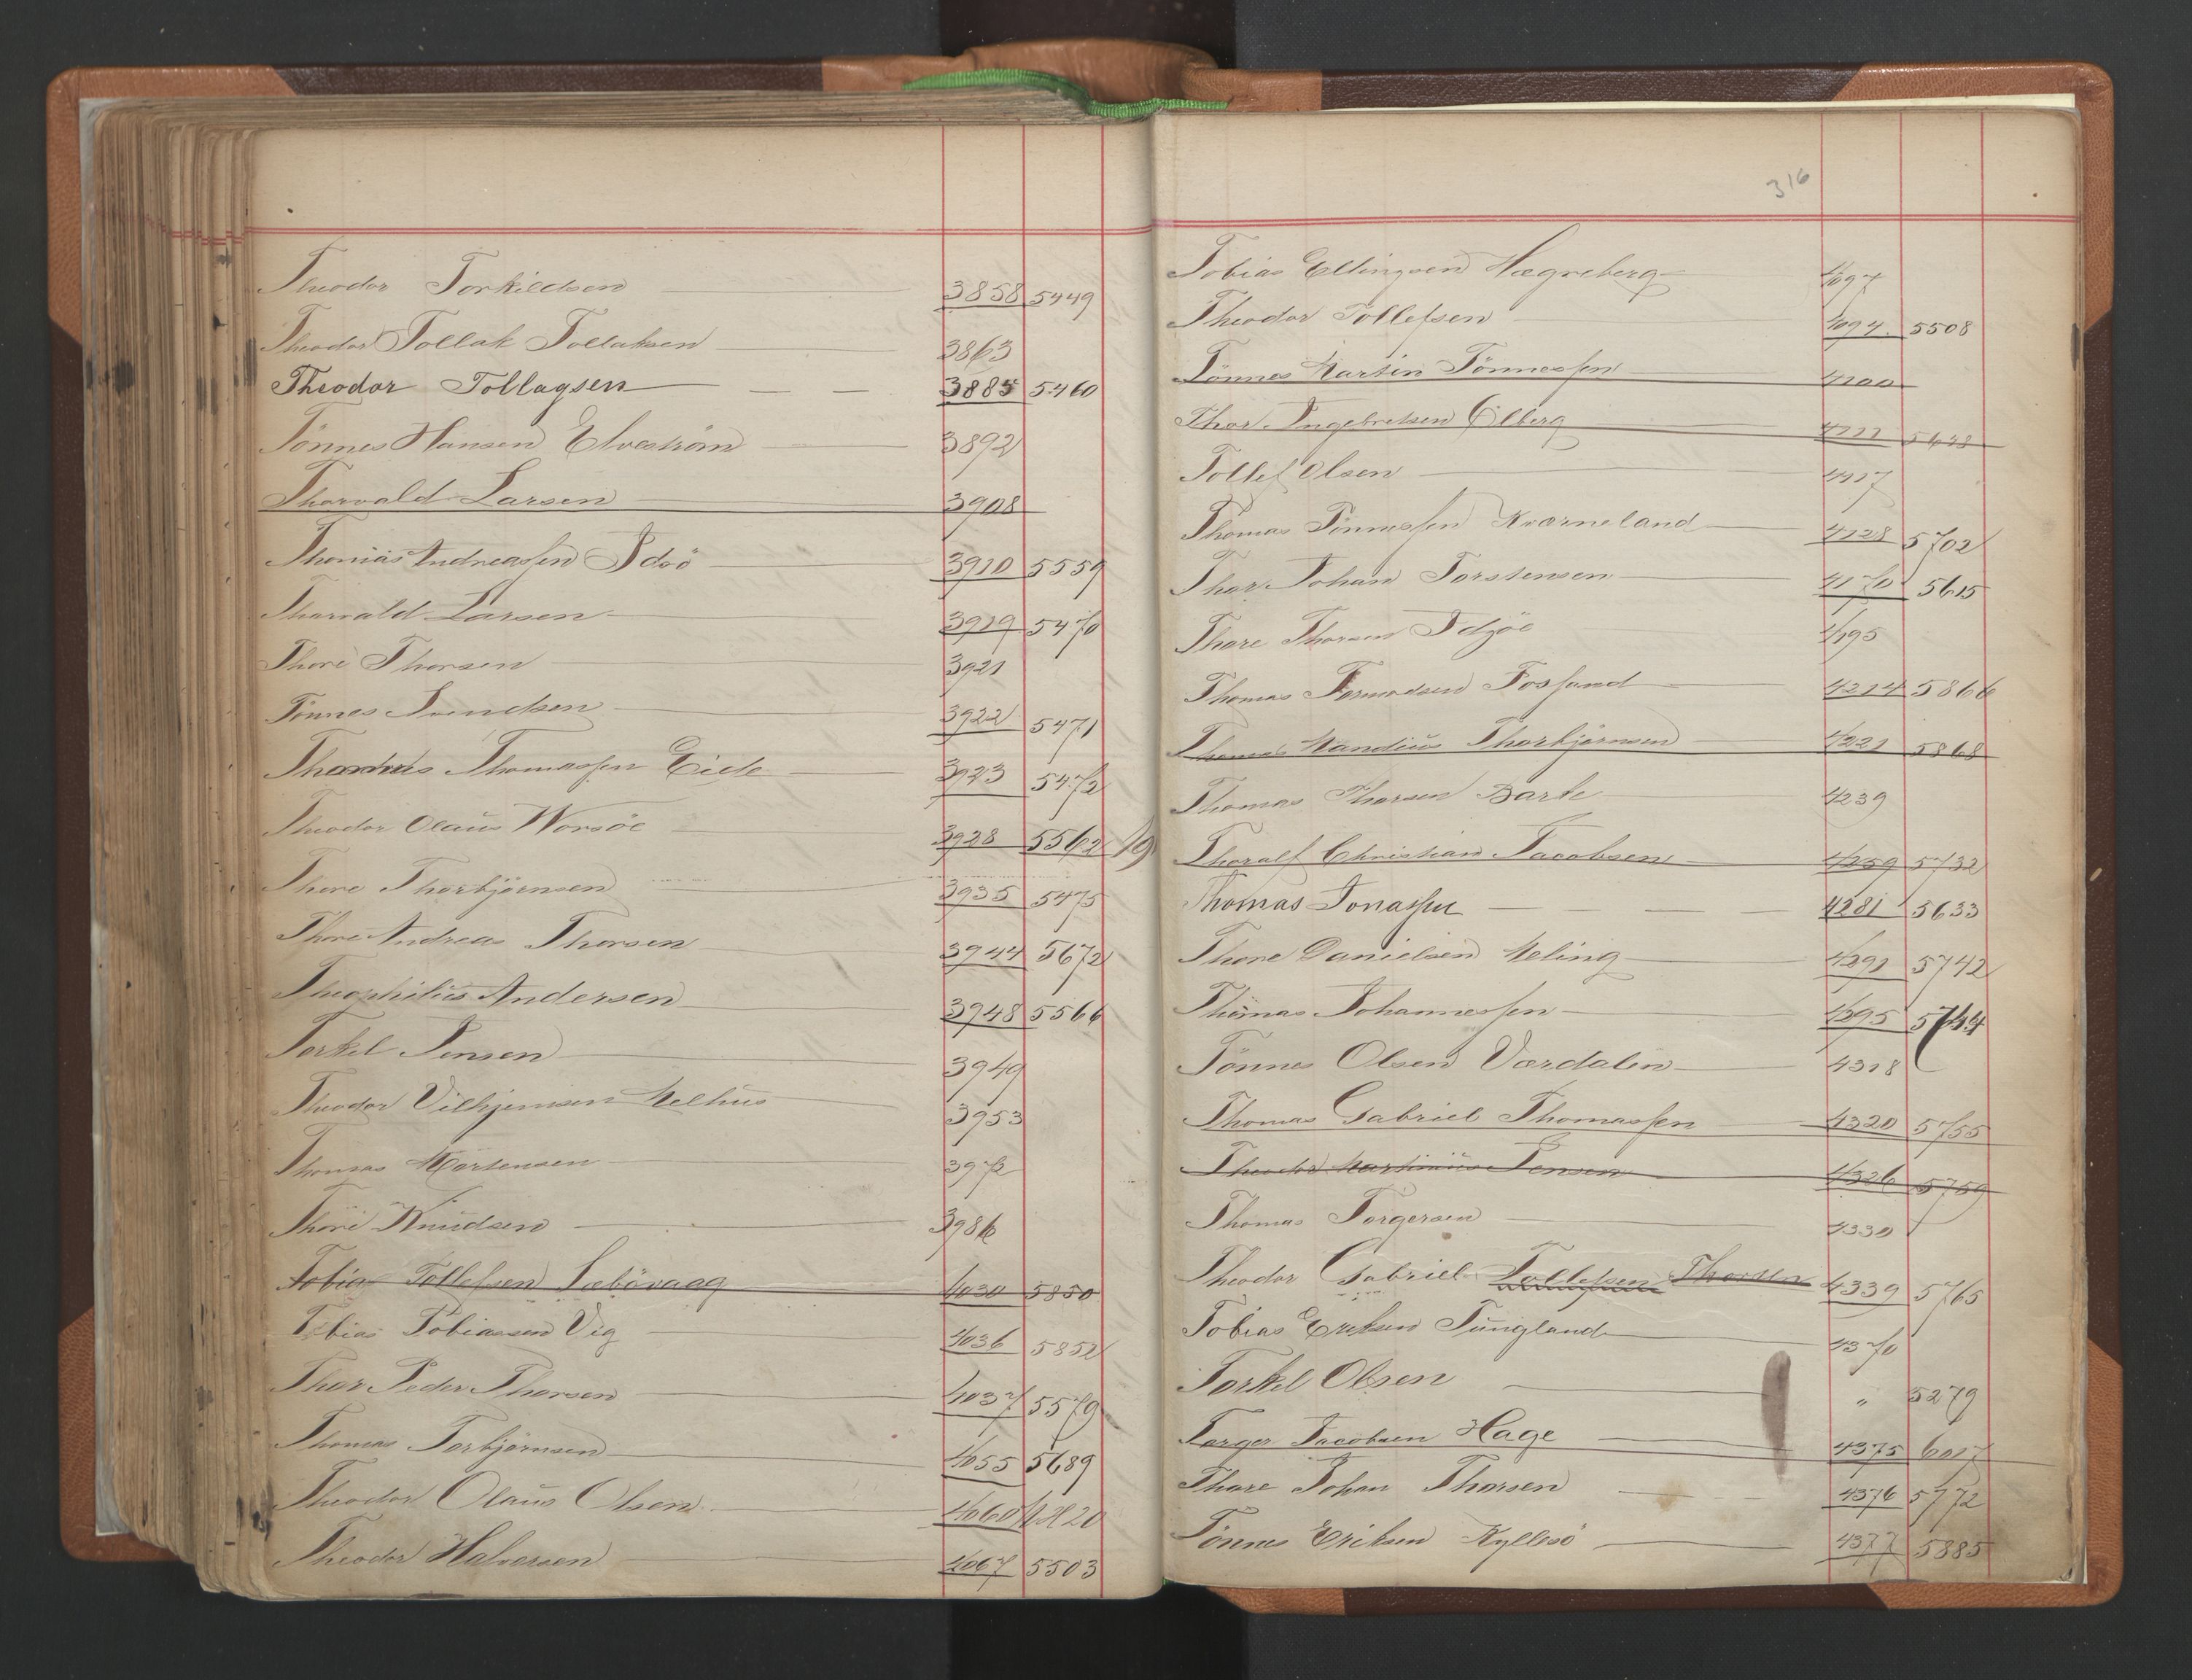 Theodor Torkildsen 3858 5449
Theodor Tollak Tollaksen 3863
Theodor Tollagsen 3885 5460
Tönnes Hansen Elveström 3892
Thorvald Larsen 3908
Thomas Andreassen Idsö 3910 5559
Thorvald Larsen 3919 5470
Thore Thorsen 3921
Tönnes Svendsen 3922 5471
Thomas Thomassen Eide 3923 5472
Theodor Olaus Worsöe 3928 5562
Thore Thorbjörnsen 3935 5475
Thore Andreas Thorsen 3944 5672
Theophilus Andersen 3948 5566
Torkel Jensen 3949
Theodor Vilhjemsen Melhus 3953
Thomas Mortensen 3972
Thore Knudsen 3986
Tobias Tollefsen Sæbövaag 4030 5850
Tobias Tobiassen Vig 4036 5852
Thor Peder Thorsen 4037 5579
Thomas Torbjörnsen 4055 5689
Theodor Olaus Olsen 4060
Theodor Halvorsen 4067 5503
316
Tobias Ellingsen Hægreberg 4097
Theodor Tollefsen 5508
Tönnes Martin Tönnessen
Thor Ingebretsen Ölberg
Tollef Olsen
Thomas Tönnessen Kværneland 4128 5702
Thor Johan Torstensen 4170 5615
Thore Thorsen Idsöe 4195
Thomas Tormodsen Fossand 4214 5866
Thomas Mandius Thorbjörnsen 4221 5868
Thomas Thorsen Barke 4239
Thoralf Christian Jacobsen 4259 5732
Thomas Jonassen 4281 5633
Thore Danielsen Meling 4291 5742
Thomas Johannessen 4295 5744
Tönnes Olsen Værdalen 4318
Thomas Gabriel Thomassen 4320 5755
Theodor Martinius Jensen 4326 5759
Thomas Torgersen 4330
Theodor Gabriel Tollefsen Thorsen 4339 5765
Tobias Eriksen Tungland 4370
Torkel Olsen " 5279
Torger Jacobsen Hage 4375 6017
Thore Johan Thorsen 4376 5772
Tönnes Eriksen Kyllesö 4377 5885